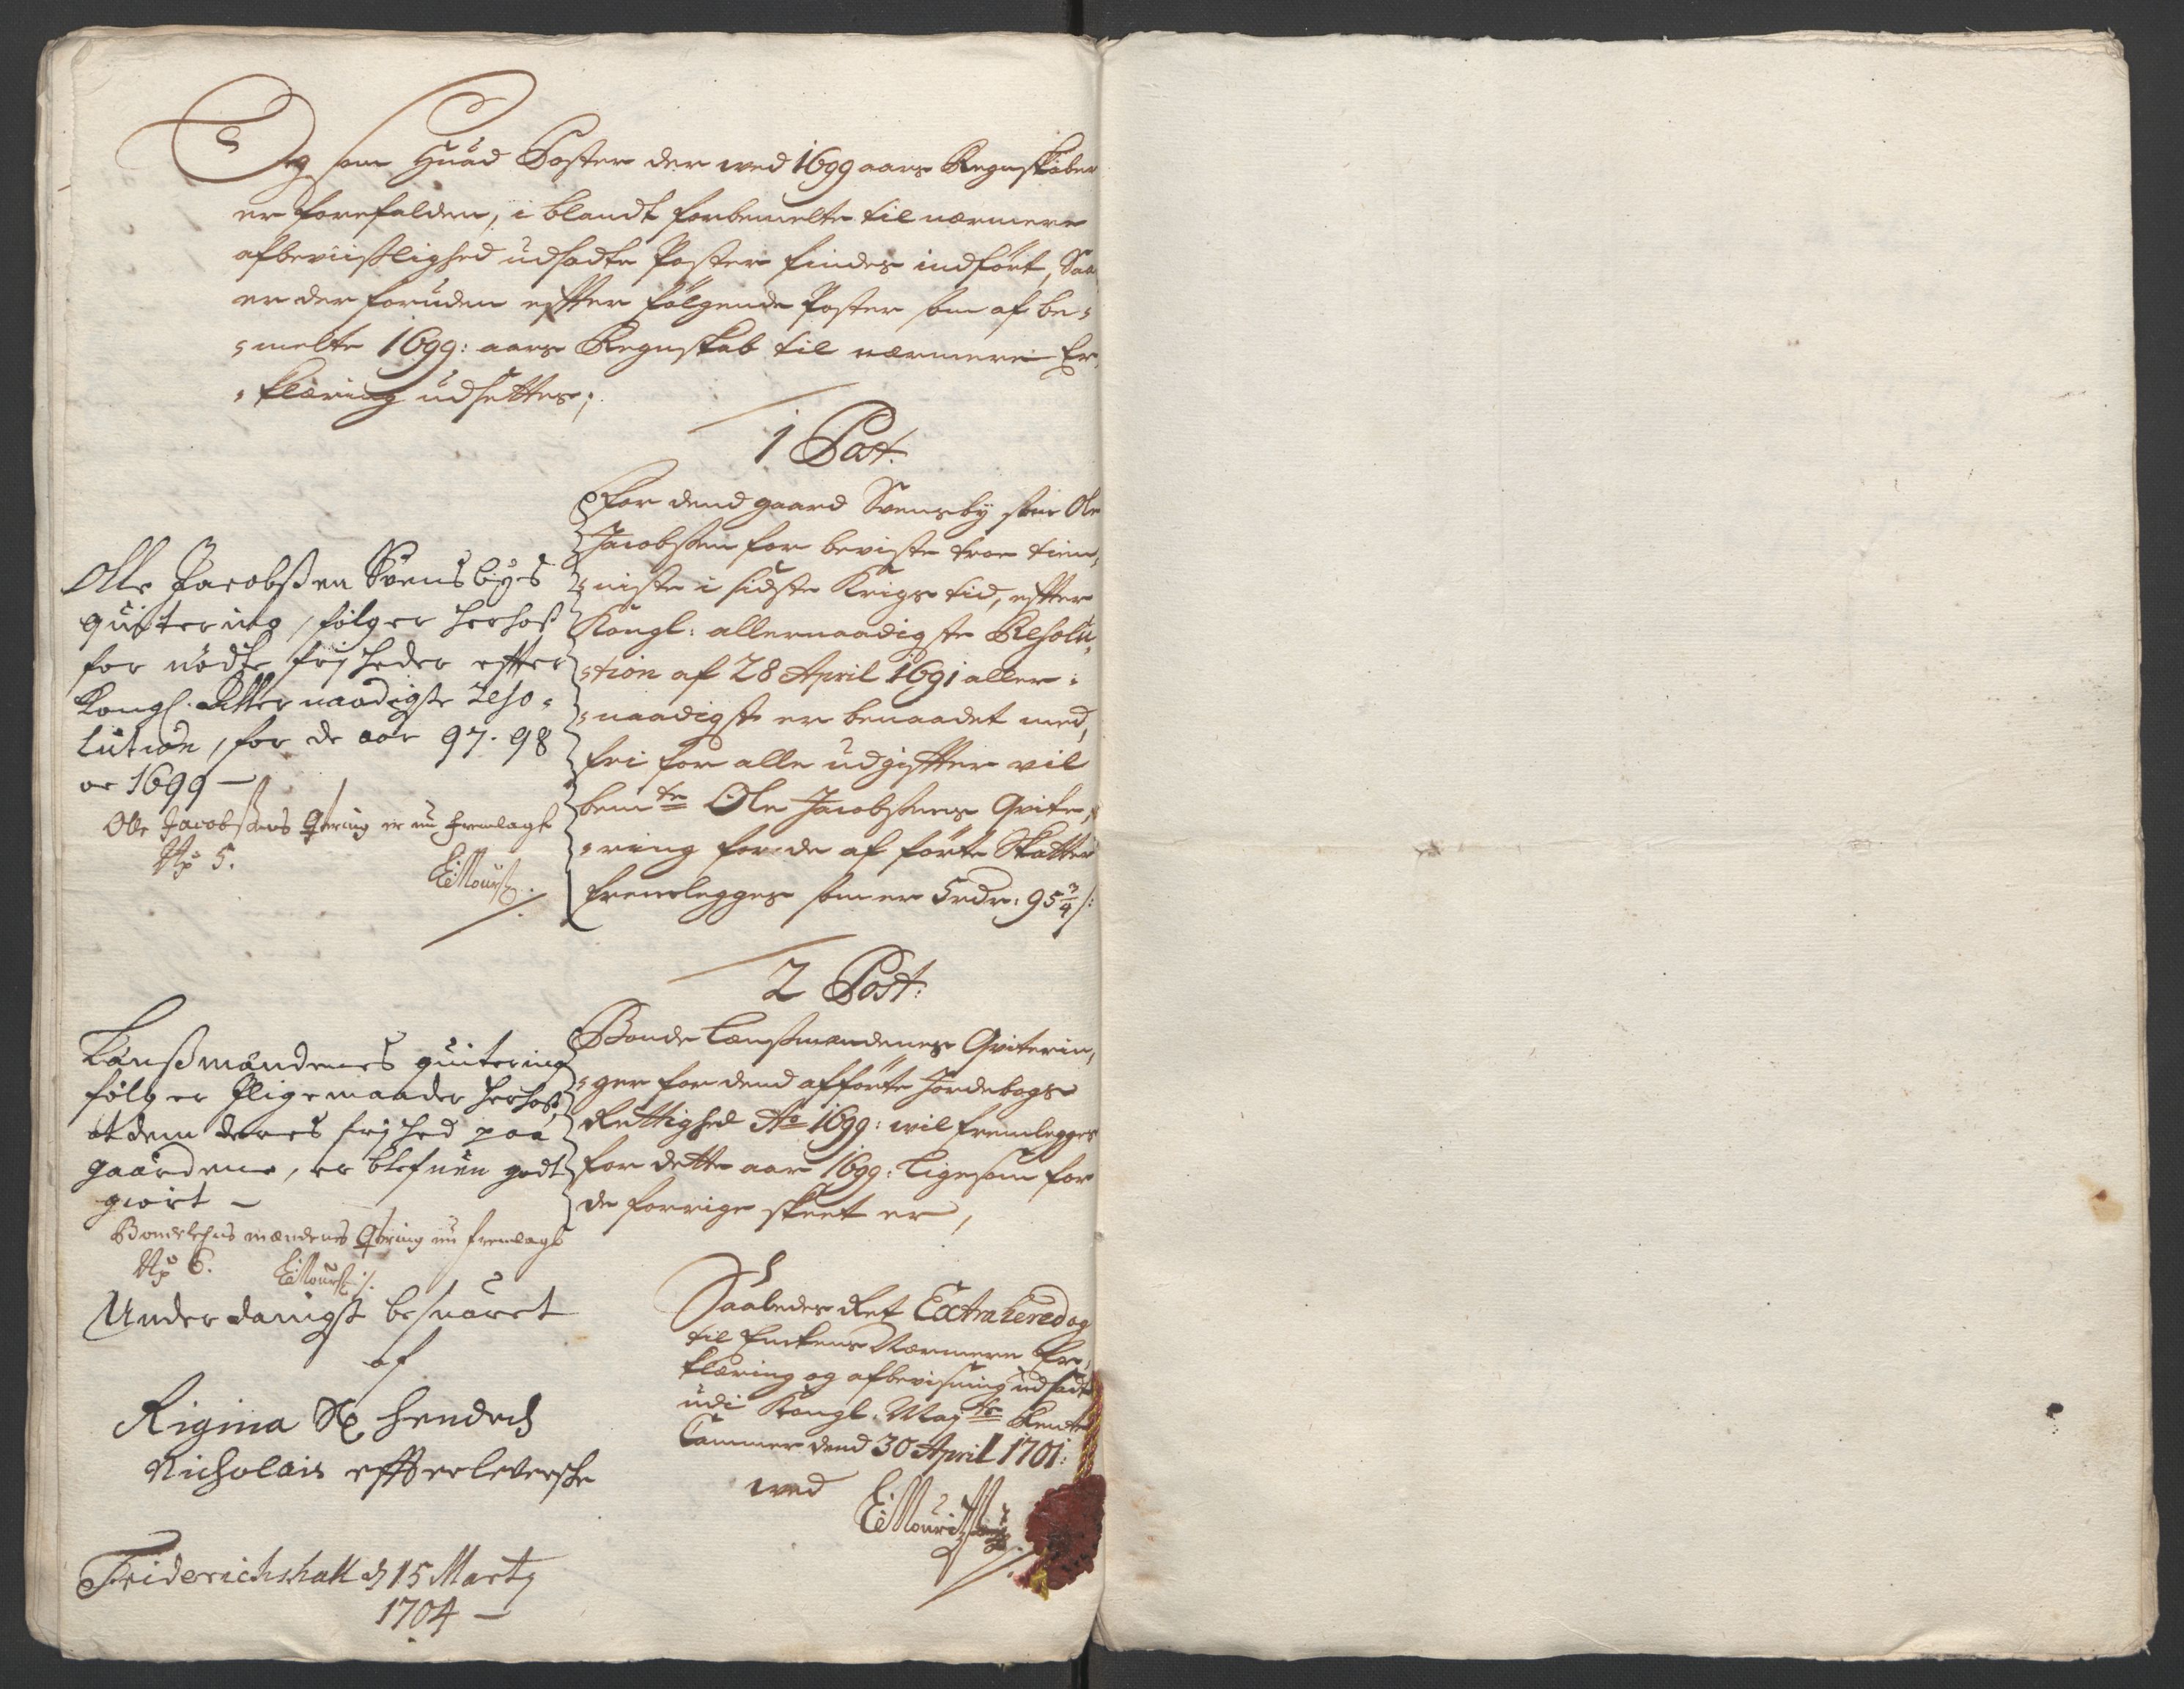 Og som Huad Poster der wed 1699 aars Regnskaber
er forefalden, i blandt forbemelte til nærmere
afbeviislighed udsadte Poster findes indført, Saa
er der foruden effter følgende Poster som af be-
melte 1699: aars Regnskab til nærmere Er-
klæring udsettes;
1 Post.
For dend gaard Svensby som Ole
Jacobsen for beviste troe tien-
niste i sidste Krigs tid, effter
Kongl: allernaadigste Resolu-
tion af 28 April 1691 aller-
naadigst er benaadet med,
fri for alle udgiffter vil
bemte Ole Jacobsens Qvite-
ring for de af førte Skatter
fremlegges som er 5 rdr: 95 3/4 s:
Olle Jacobsen Svensbys
quitering, følger herhos
for nødte frjheder effter
Kongl. Aller naadigste Reso-
lution, for de aar 97. 98
oc 1699 —
Olle Jacobsens Qtering er nu fremlagt
No 5.
EMouritz.
2 Post:
Bonde Lensmendenes Qviterin-
ger for dend afførte Jordebogs
Rettighed Ao 1699: wil fremlegges
for dette aar 1699: ligesom for
de forrige skeet er,
Lensmændenes quitering
følger ligemaader herhos,
at dem deres frjhed paa
gaardene, er blefuen godt
giort —
Bondelehns mændenes Qtring nu fremlagt
No 6. EMouritz.
Underdanigst besuaret
af
Rigina Sl Hendrich
Nicholais effterleverske
Friderichshall d 15 Marty
1704 —
Saaledes Ret Extraheret og
til Enckens Nærmere Er-
klæring og afbevisning udsadt
udi Kongl. Mayts Rente
Cammer dend 30 April 1701:
wed
EMouritzen